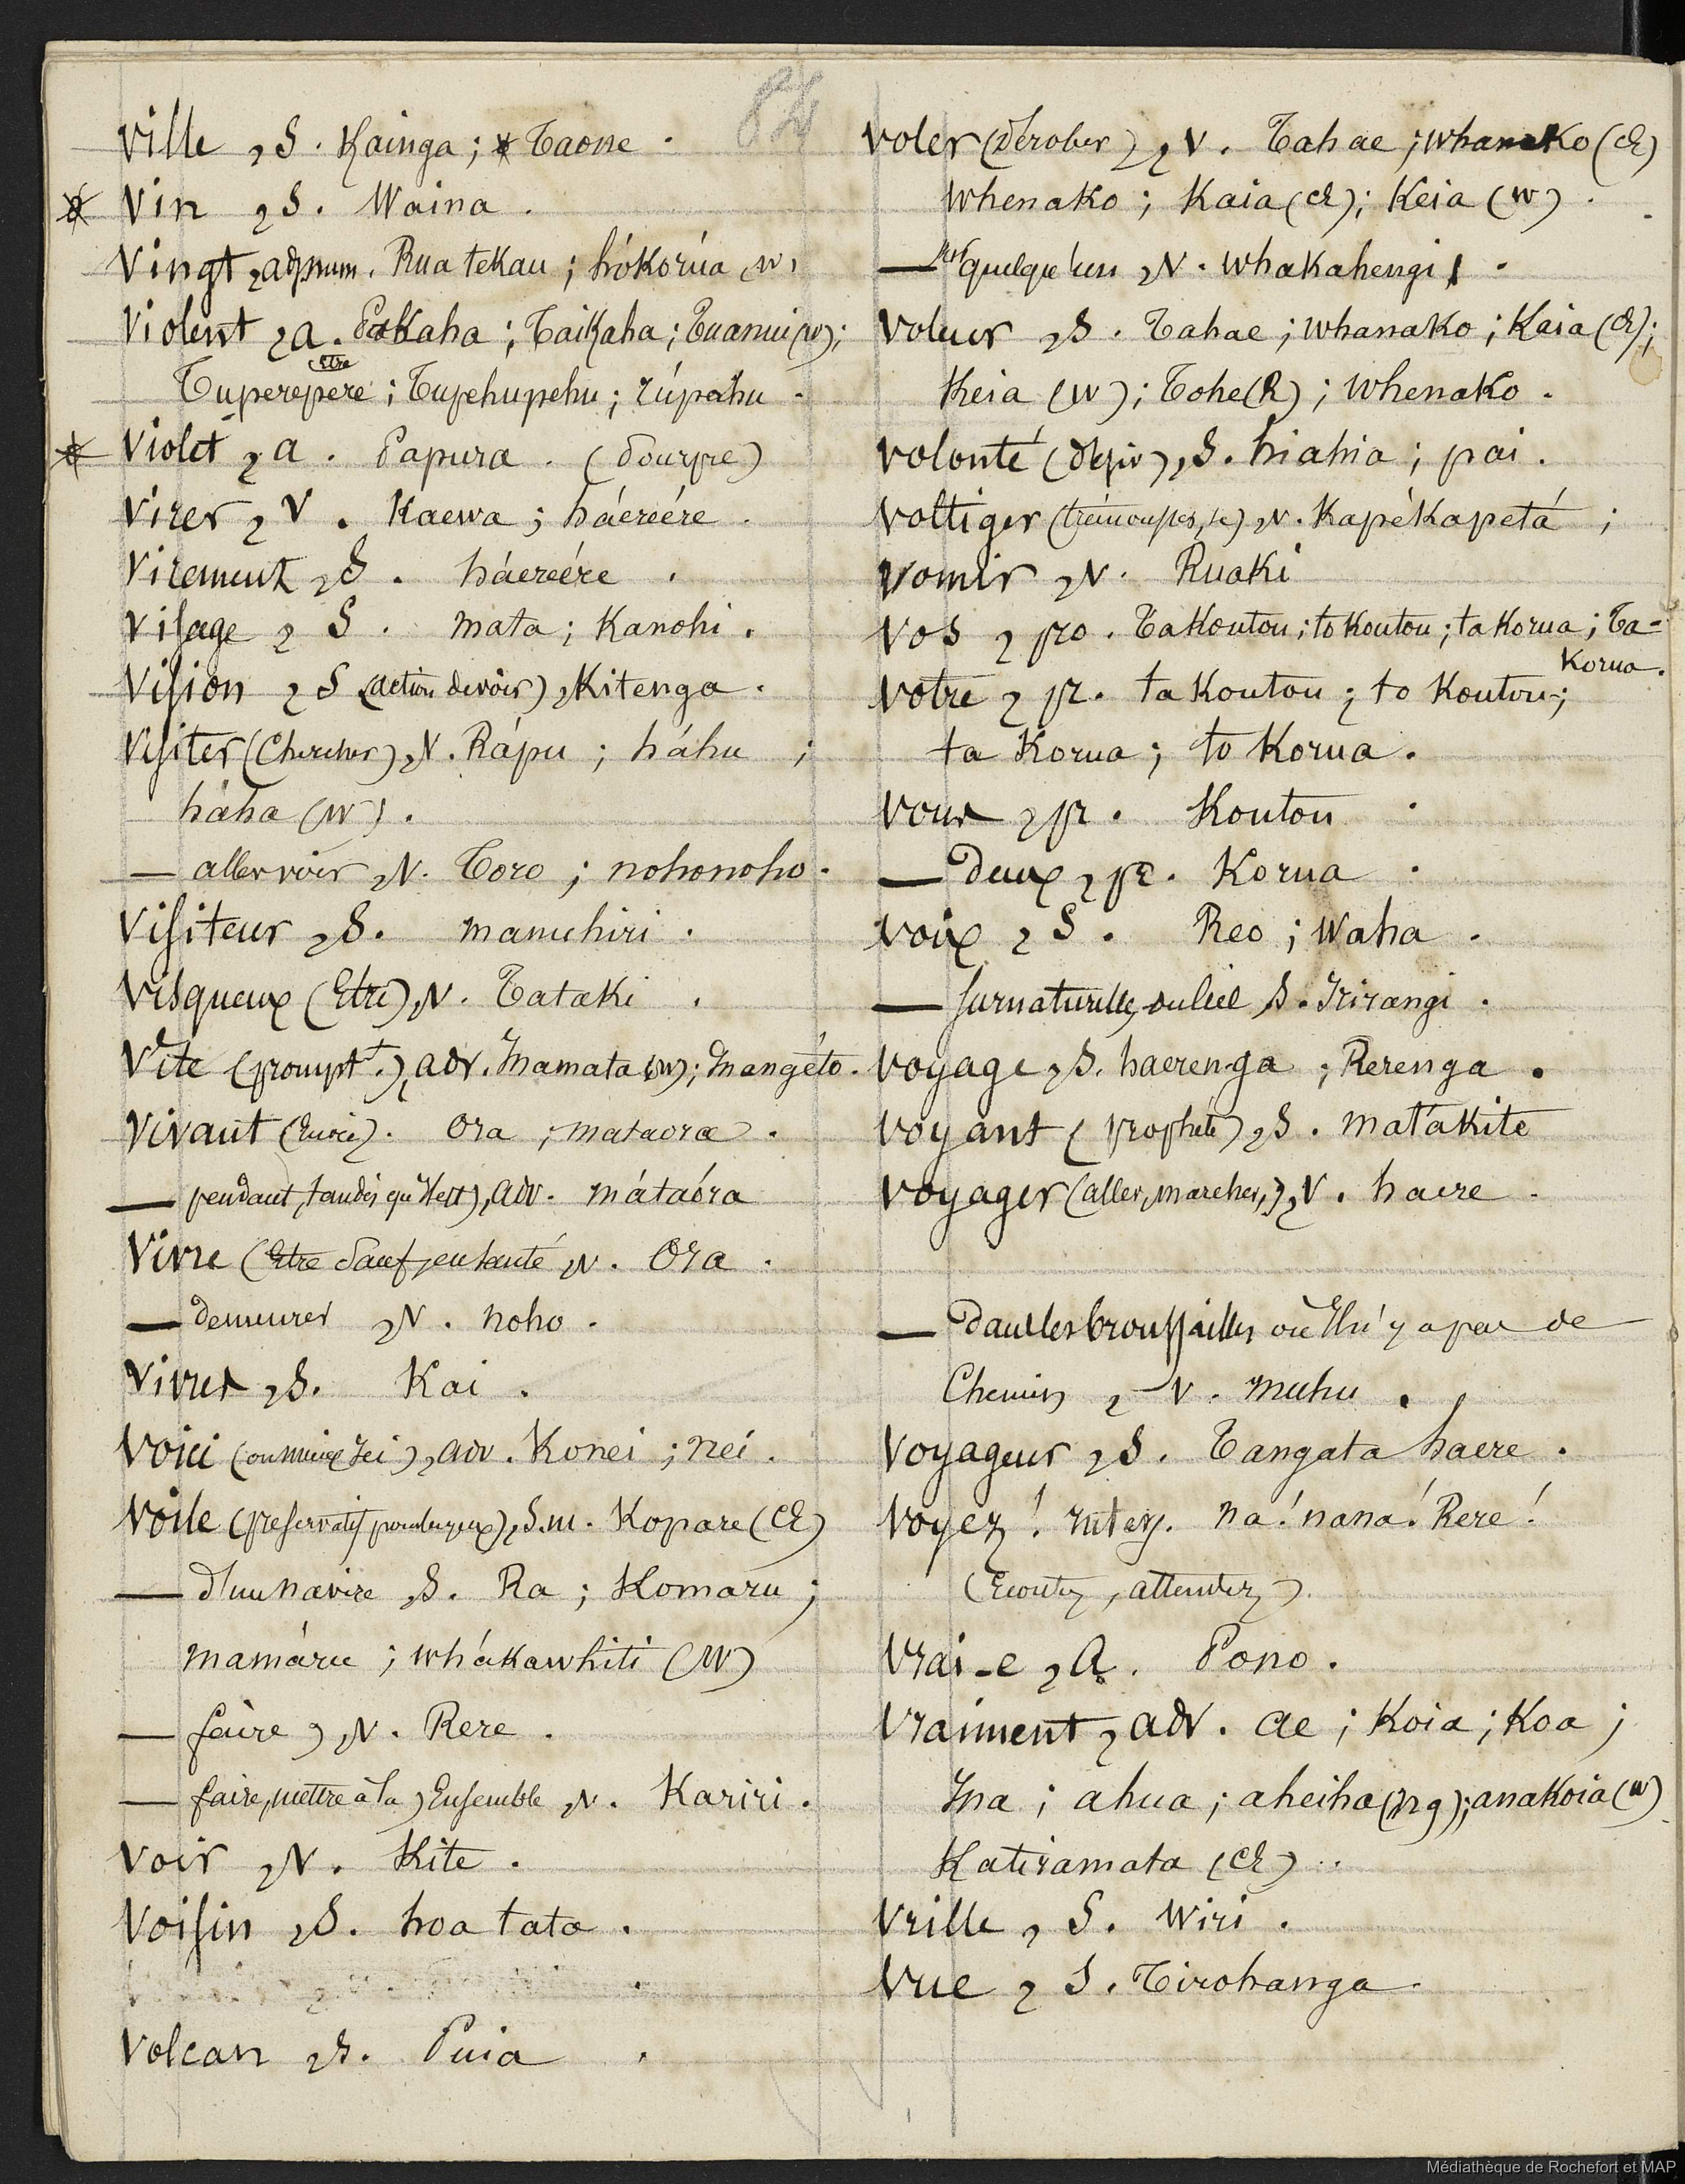 82
Ville, S. Kainga; * Taone.
* Vin, S. Waina.
Vingt, adj num. Rua tekau; hókorúa (w)
Violent, a. Pakaha; Taikaha; Tuanui (w);
Être
Tuperepere; Tupehupehu; rúpahu.
* Violet, a. Papura. (Pourpre)
Virer, V. Kaewa; háereére.
Virement, S. háereére.
Visage, S. mata; Kanohi.
Vision, S (action de voir), Kitenga.
Visiter (Chercher), V. Rápu; háhu;
háha (W).
— aller voir, V. Toro; nohonoho.
Visiteur, S. manuhiri.
Visqueux (Etre), V. Tataki.
Vite (prompt.t), adv. Mamata (w); Mangéto.
Vivant (En vie). Ora; mataora.
— pendant, tandis qu'il est), adv. mátaóra
Vivre (Etre Sauf, en santé, V. Ora.
— demeurer, V. noho.
Vivres, S. Kai.
Voici (ou mieux Ici), adv. Konei; nei.
Voile (preservatif pour les yeux), S.m. Kopare (CE)
— d'un navire, S. Ra; Komaru;
mamáru; whákawhiti (W)
— faire), V. Rere.
— faire, mettre à la) Ensemble, V. Kariri.
Voir, V. Kite.
Voisin, S. hoa tata.
Volcan, S. Puia.
Voler (Dérober), V. Tahae; whanako (CE)
Whenako; Kaia (CE); Keia (W).
— quelqu'un, V. whakahengi.
Voleur, S. Tahae; whanako; Kaia (CE);
Keia (W); Tohe (R); Whenako.
Volonté (désir), S. hiahia; pai.
Voltiger (trémousser, se), V. Kapékapetá;
Vomir, V. Ruaki
Vos, pro. Ta Koutou; to Koutou; ta Korua; Ta-
Korua.
Votre, pr. ta Koutou; to Koutou;
ta Korua; to Korua.
Vous, pr. Koutou.
— Deux, pr. Korua.
Voix, S. Reo; Waha.
— surnaturelle, S. Irirangi.
Voyage, S. haerenga; Rerenga.
Voyant (prophète), S. matakite
Voyager (aller, marcher,), V. haere.
— Dans les broussailles où Il n'y a pas de
Chemin, V. muhu.
Voyageur, S. Tangata haere.
Voyez! interj. na! nana! Rere!
(Ecoutez, attendez).
Vrai-e, a. Pono.
Vraiment, adv. ae; Koia; Koa;
Ina; ahua; aheiha (ng); anakoia (w)
Katiramata (CE).
Vrille, S. Wiri.
Vue, S. Tirohanga.
Médiathèque de Rochefort et MAP